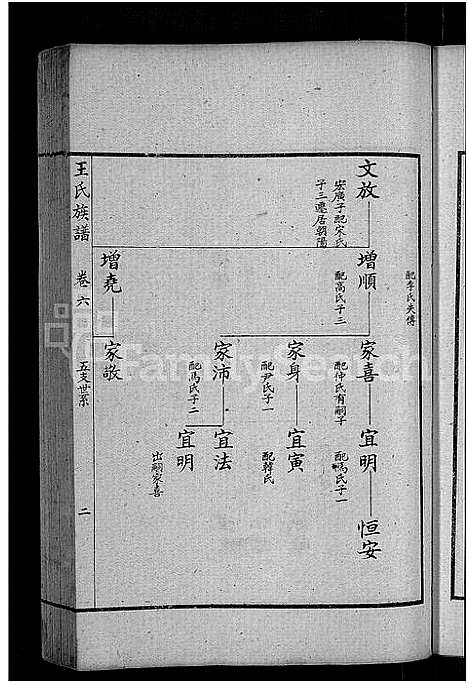 配李氏失傳
文放
宏廣子配宋氏
子三遷居朝陽
增順
配高氏子三
家喜
配仲氏有嗣子
宜明
配馮氏子一
恒安
家身
配尹氏子一
宜寅
配韓氏
家沛
配馬氏子二
宜法
宜明
出嗣家喜
增堯
家敬
王氏族譜
卷六
五支世系
二
FamilySearch